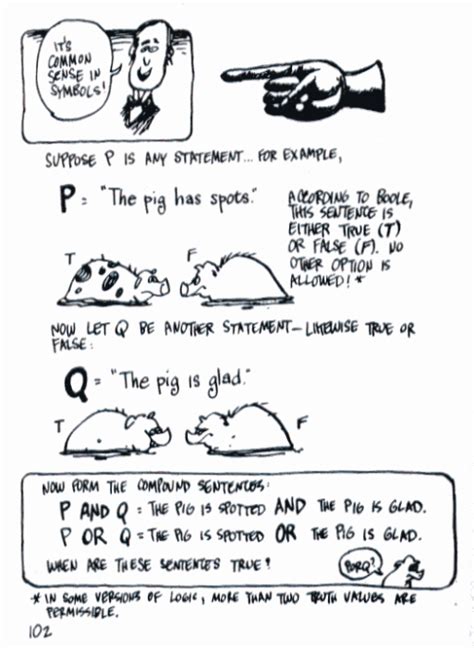 IT'S
COMMON
SENSE IN
SYMBOLS!
SUPPOSE P IS ANY STATEMENT... FOR EXAMPLE,
P = "The pig has spots."
ACCORDING TO BOOLE,
THIS SENTENCE IS
EITHER TRUE (T)
OR FALSE (F). NO
OTHER OPTION IS
ALLOWED! *
T F
NOW LET Q BE ANOTHER STATEMENT—LIKEWISE TRUE OR
FALSE:
Q = "The pig is glad."
T F
NOW FORM THE COMPOUND SENTENCES:
P AND Q = THE PIG IS SPOTTED AND THE PIG IS GLAD.
P OR Q = THE PIG IS SPOTTED OR THE PIG IS GLAD.
WHEN ARE THESE SENTENCES TRUE?
PORQ?
* IN SOME VERSIONS OF LOGIC, MORE THAN TWO TRUTH VALUES ARE
PERMISSIBLE.
102